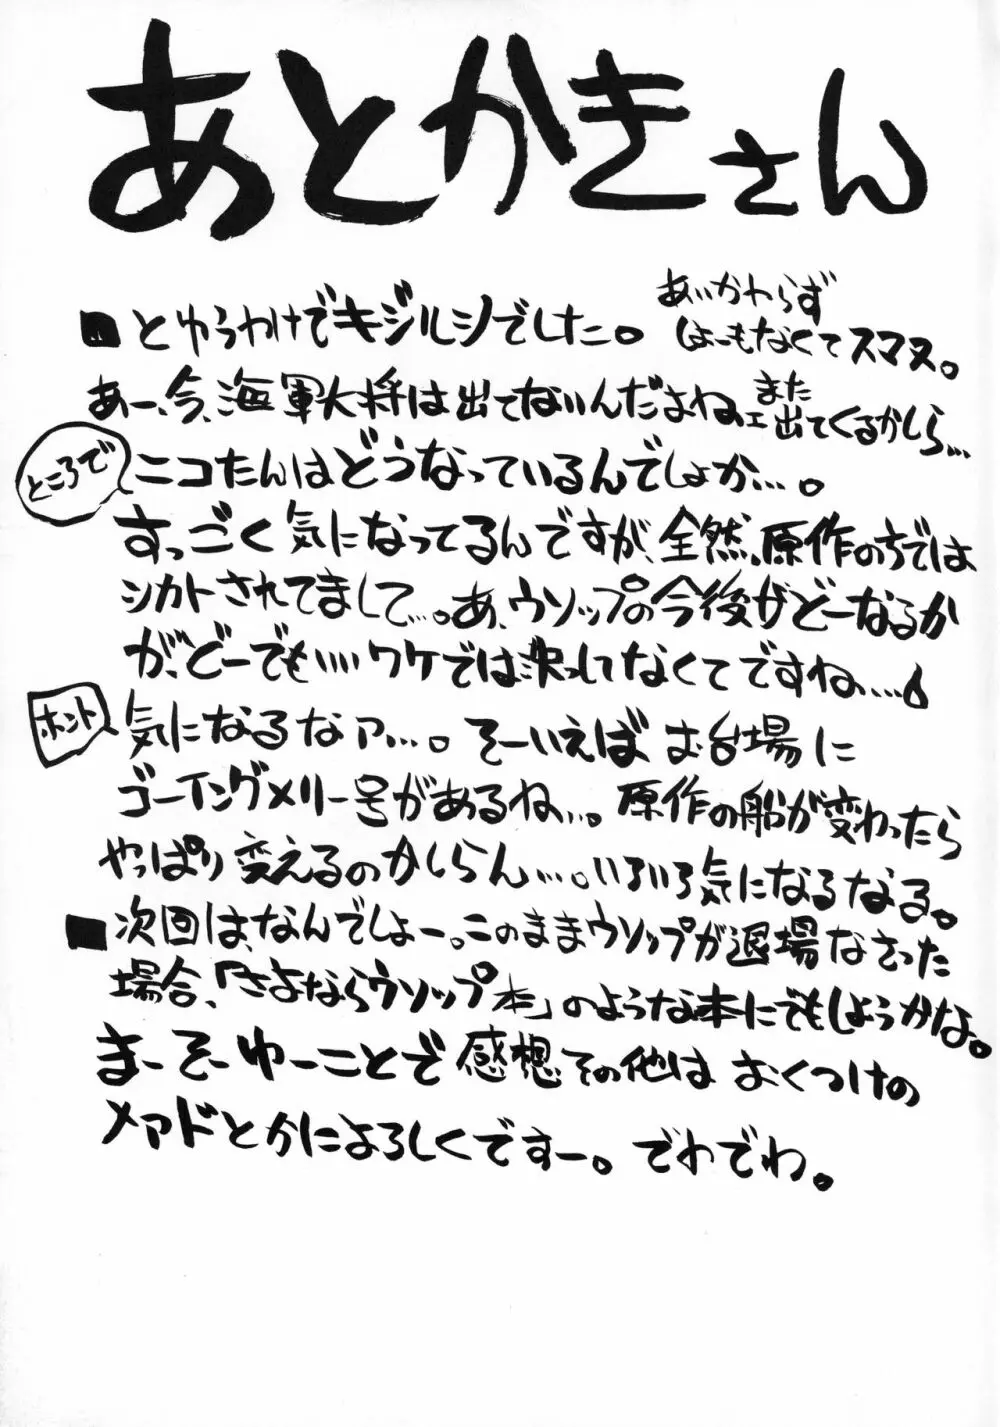 あとかきさん
■とゆうわけでキジルシでした。
あいかわらず
しょーもなくてスマヌ。
あー、今、海軍大将は出てないんださよね、
また
出てくるかしら…
ところで
ニコたんはどうなっているんでしょか…。
すっごく気になってるんですが、全然、原作の方では
シカトされてまして…。あ、ウソップの今後がどーなるか
が、どーでも…ワケでは決してなくてですね…
ホント
気になるなァ…。そーいえばお台場に
ゴーイングメリー号があるね…。原作の船が変わったら
やっぱり変えるのかしらん…。いろいろ気になるなる。
■次回は、なんでしょー。このままウソップが退場なさった
場合、「さよならウソップ本」のような本にでもしようかな。
まーそーゆーことで感想その他はおくつけの
メアドとかによろしくですー。でわでわ。